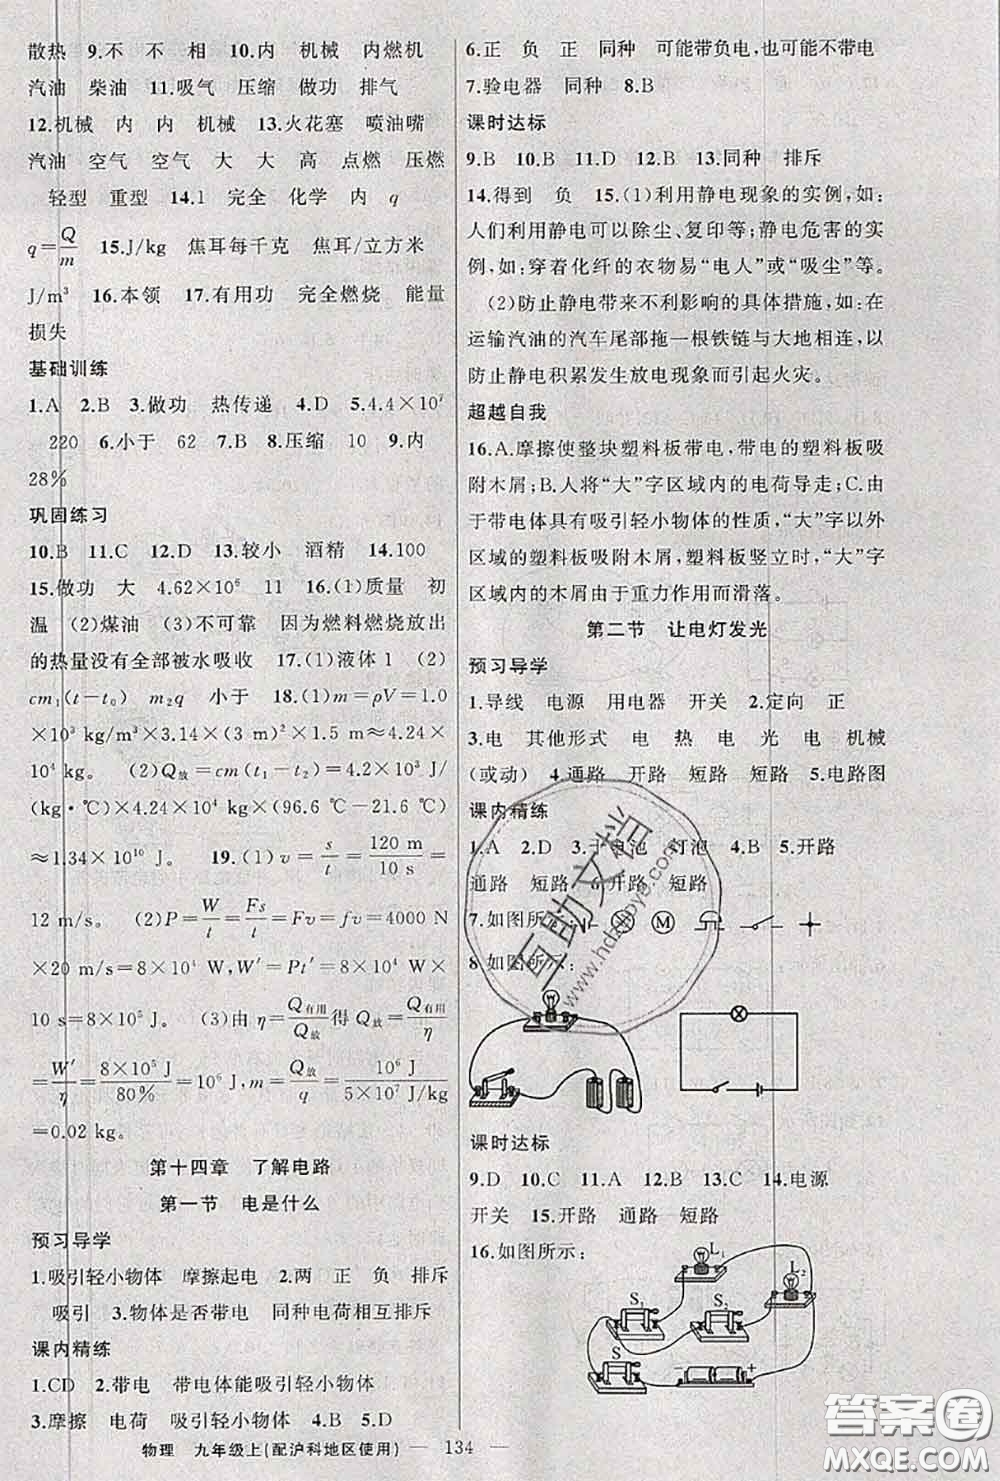 散热　9.不　不　相　10.内　机械　内燃机
汽油　柴油　11.吸气　压缩　做功　排气
12.机械　内　内　机械　13.火花塞　喷油嘴
汽油　空气　空气　大　大　高　点燃　压燃
轻型　重型　14.1　完全　化学　内　q
q=Q/m　15.J/kg　焦耳每千克　焦耳/立方米
J/m³　16.本领　17.有用功　完全燃烧　能量
损失
基础训练
1.A　2.B　3.做功　热传递　4.D　5.4.4×10⁷
220　6.小于　62　7.B　8.压缩　10　9.内
28%
巩固练习
10.B　11.C　12.D　13.较小　酒精　14.100
15.做功　大　4.62×10⁶　11　16.(1)质量　初
温　(2)煤油　(3)不可靠　因为燃料燃烧放出
的热量没有全部被水吸收　17.(1)液体1　(2)
cm₁(t－t₀)　m₂q　小于　18.(1)m=ρV=1.0
×10³ kg/m³×3.14×(3 m)²×1.5 m≈4.24×
10⁴ kg。　(2)Q放=cm(t₁－t₂)=4.2×10³ J/
(kg·℃)×4.24×10⁴ kg×(96.6 ℃－21.6 ℃)
≈1.34×10¹⁰ J。　19.(1)v=s/t=120 m/10 s=
12 m/s。　(2)P=W/t=Fs/t=Fv=fv=4000 N
×20 m/s=8×10⁴ W,W′=Pt′=8×10⁴ W×
10 s=8×10⁵ J。　(3)由η=Q有用/Q放得Q放=Q有用/η
=W′/η=8×10⁵ J/80%=10⁶ J,m=Q放/q=10⁶ J/5×10⁷ J/kg
=0.02 kg。
第十四章　了解电路
第一节　电是什么
预习导学
1.吸引轻小物体　摩擦起电　2.两　正　负　排斥
吸引　3.物体是否带电　同种电荷相互排斥
课内精练
1.CD　2.带电　带电体能吸引轻小物体
3.摩擦　电荷　吸引轻小物体　4.B　5.D
6.正　负　正　同种　可能带负电,也可能不带电
7.验电器　同种　8.B
课时达标
9.B　10.B　11.D　12.B　13.同种　排斥
14.得到　负　15.(1)利用静电现象的实例,如:
人们利用静电可以除尘、复印等;静电危害的实
例,如:穿着化纤的衣物易“电人”或“吸尘”等。
(2)防止静电带来不利影响的具体措施,如:在
运输汽油的汽车尾部拖一根铁链与大地相连,以
防止静电积累发生放电现象而引起火灾。
超越自我
16.A.摩擦使整块塑料板带电,带电的塑料板吸
附木屑;B.人将“大”字区域内的电荷导走;C.由
于带电体具有吸引轻小物体的性质,“大”字以外
区域的塑料板吸附木屑,塑料板竖立时,“大”字
区域内的木屑由于重力作用而滑落。
第二节　让电灯发光
预习导学
1.导线　电源　用电器　开关　2.定向　正
3.电　其他形式　电　热　电　光　电　机械
(或动)　4.通路　开路　短路　短路　5.电路图
课内精练
1.A　2.D　3.干电池　灯泡　4.B　5.开路
通路　短路　6.开路　短路
7.如图所示:　M
8.如图所示:
课时达标
9.D　10.C　11.A　12.C　13.C　14.电源
开关　15.开路　通路　短路
16.如图所示:
L₁
L₂
S₁
S₂
S
－　＋
物理　九年级上(配沪科地区使用)　—　134　—
互助文档
www.hdzhuyb.com
答案圈
MXQE.COM